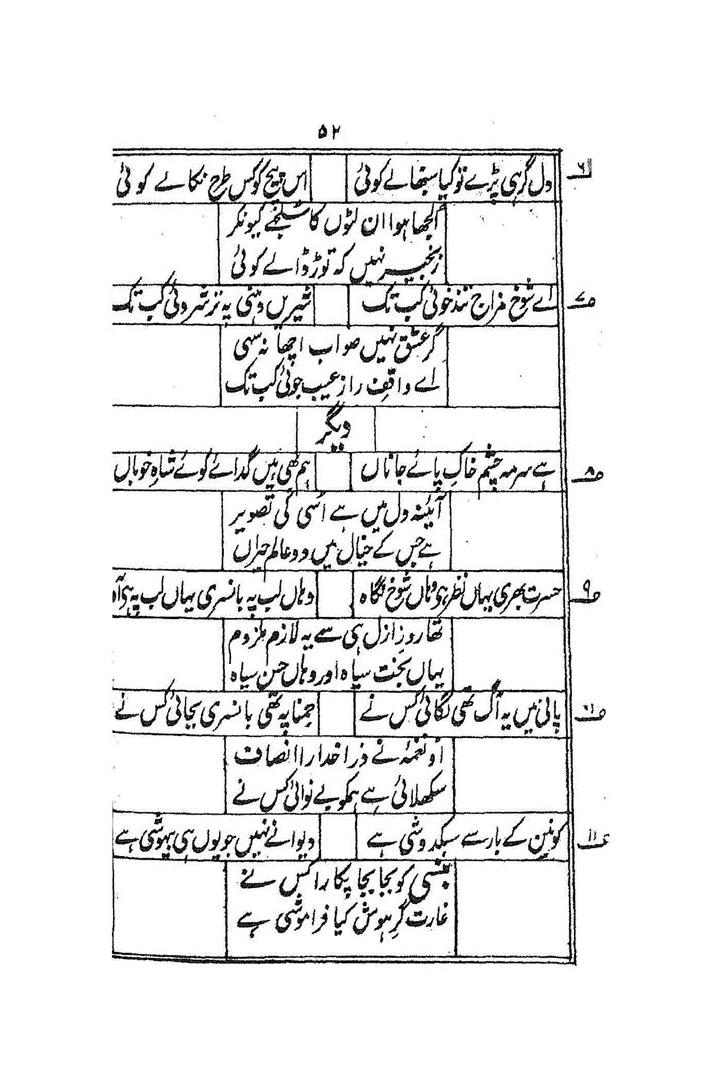 ۵۲
۶
دل گر ہی پڑے تو کیا سنبھالے کوئی
اس پیچ کو کس طرح نکالے کوئی
الجھا ہوا ان لٹوں کا سلجھے کیونکر
زنجیر نہیں کہ توڑ ڈالے کوئی
۷
اے شوخ مزاج تند خوئی کب تک
شیریں دہنی پہ ترشروئی کب تک
گر عشق نہیں صواب اچھا نہ سہی
اے واقفِ راز عیب جوئی کب تک
دیگر
۸
ہے سرمہ چشم خاکِ پائے جاناں
ہم بھی ہیں گدائے کوئے شاہِ خوباں
آئینہ دل میں ہے اُسی کی تصویر
ہے جس کے خیال میں دو عالم حیراں
۹
حسرت بھری یہاں نظر ہی وہاں شوخ نگاہ
وہاں لب پہ بانسری یہاں لب پہ ہی آہ
تھا روزِ ازل ہی سے یہ لازم ملزوم
یہاں بخت سیاہ اور وہاں حسن سیاہ
پانی میں یہ آگ تھی لگائی کس نے
جمنا پہ تھی بانسری بجائی کس نے
او نغمۂ نے ذرا خدارا انصاف
سکھلائی ہے ہمکو بے نوائی کس نے
۱۱
کونین کے بار سے سبکدوشی ہے
دیوانے نہیں جو یوں ہی بیہوشی ہے
بنسی کو بجا بجا پکارا کس نے
غارت گرِ ہوش کیا فراموشی ہے